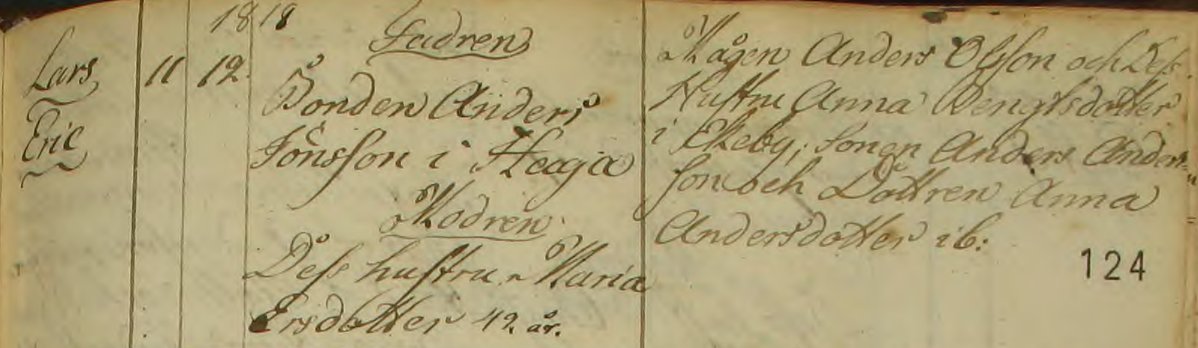 1818
Lars
Eric
11 12.
Fadren
Bonden Anders
Jönsson i Heagia
Modren
Dess hustru Maria
Ersdotter 42. år.
Mågen Anders Olsson och Dess
Hustru Anna Bengtsdotter
i Ekeby, Sonen Anders Anders-
son och Dottren Anna
Andersdotter ib:
124